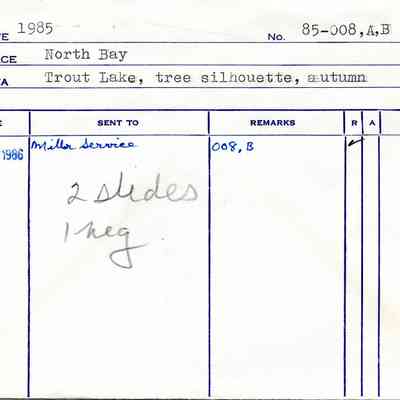 TE 1985 No. 85-008,A,B
CE North Bay
A Trout Lake, tree silhouette, autumn
E SENT TO REMARKS R A
1986 Miller Service 008, B ✓
2 slides
1 neg